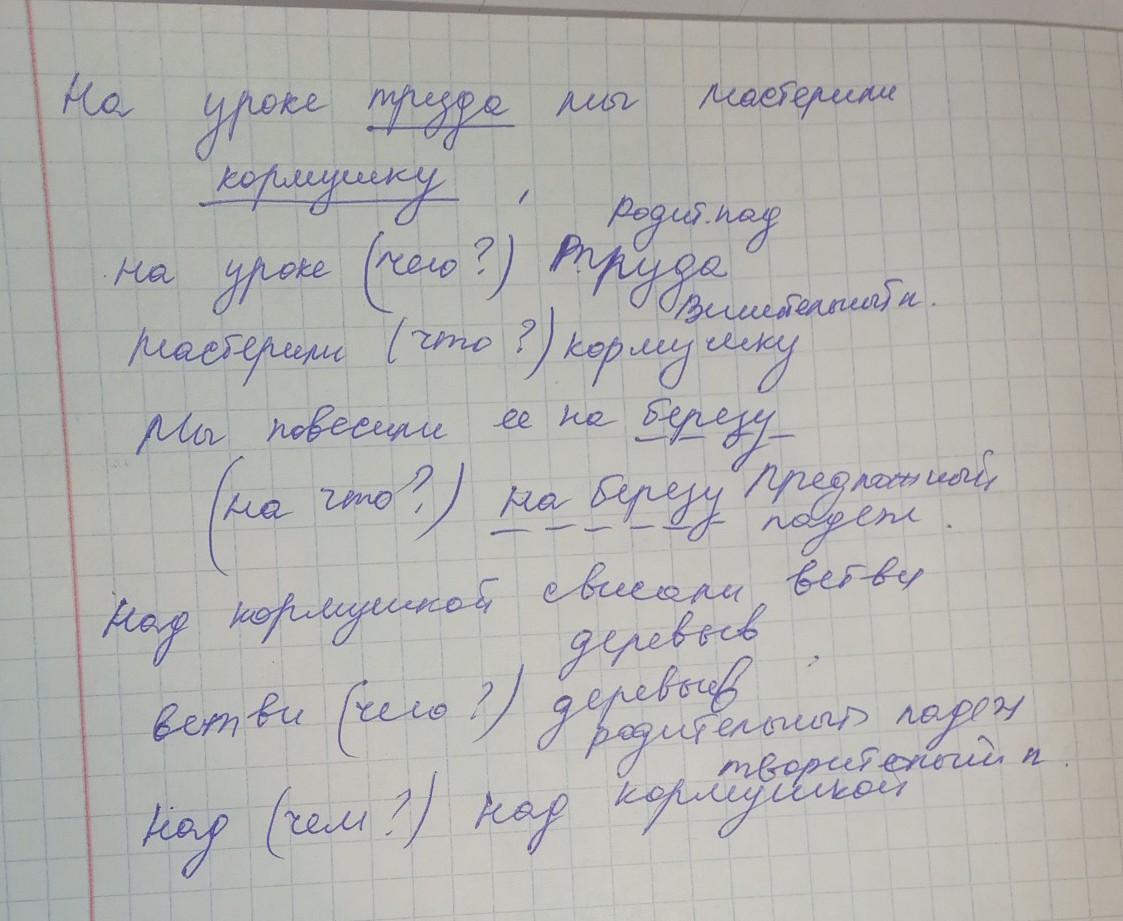 На уроке труда мы мастерили
кормушку,
Родит. пад
на уроке (чего?) труда
Винительный п.
мастерили (что?) кормушку
Мы повесили ее на березу
(на что?) на березу Предложный
падеж.
Над кормушкой свисали ветви
деревьев
ветви (чего?) деревьев
родительный падеж
творительный п.
Над (чем?) над кормушкой